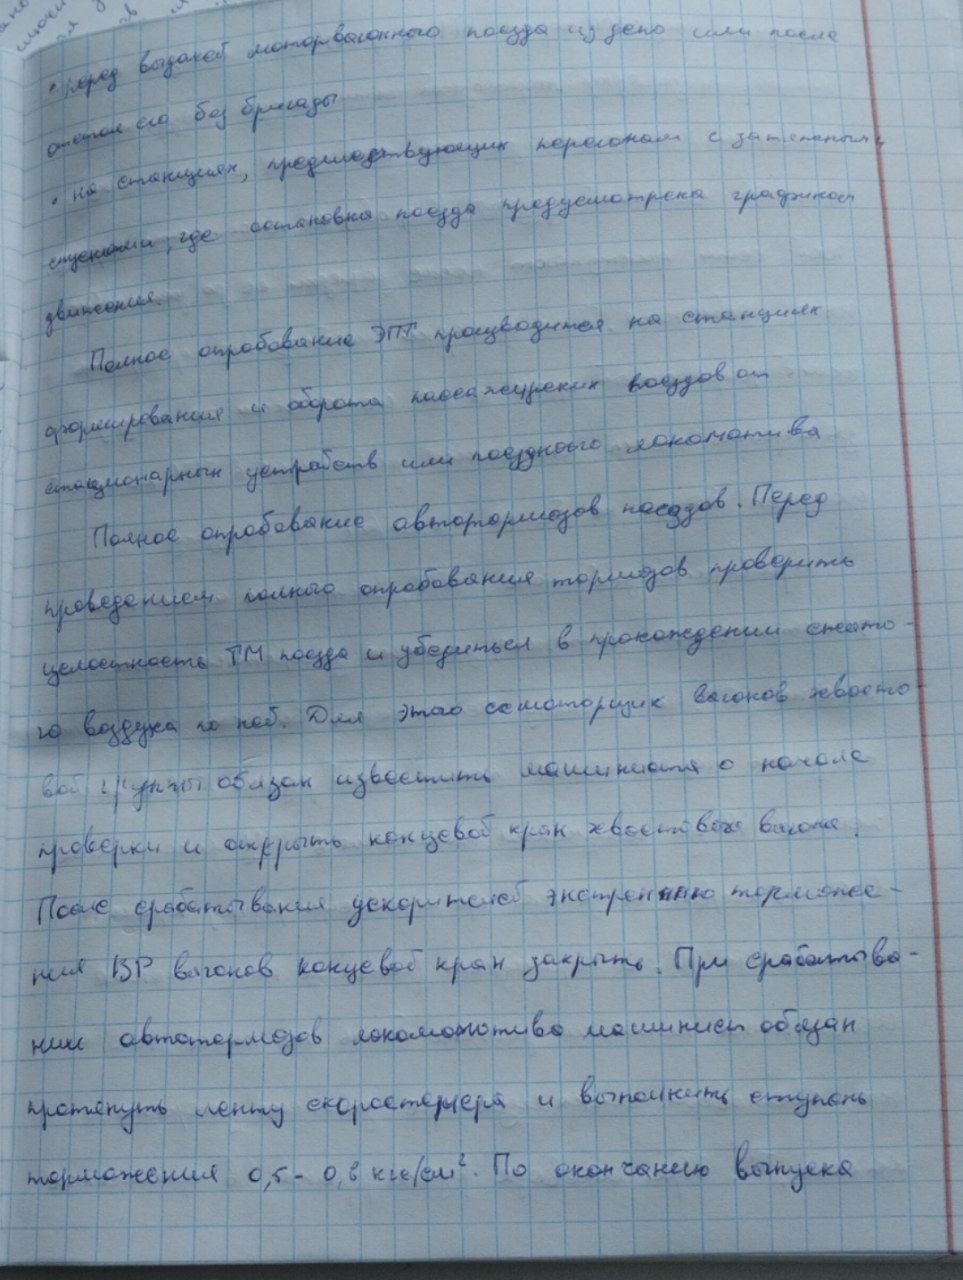 • перед выдачей моторвагонного поезда из депо или после
отстоя его без бригады
• на станциях, предшествующих перегонам с затяжными
спусками, где остановка поезда предусмотрена графиком
движения.
Полное опробование ЭПТ производится на станциях
формирования и оборота пассажирских поездов от
стационарных устройств или поездного локомотива
Полное опробование автотормозов поездов. Перед
проведением полного опробования тормозов проверить
целостность ТМ поезда и убедиться в прохождении сжато-
го воздуха по ней. Для этого осмоторщик вагонов хвосто-
вой группы обязан известить машиниста о начале
проверки и открыть концевой кран хвостового вагона.
После срабатывания ускорителей экстренного торможе-
ния ВР вагонов концевой кран закрыть. При срабатыва-
нии автотормозов локомотива машинист обязан
протянуть ленту скоростемера и выполнить ступень
торможения 0,5 - 0,6 кгс/см². По окончанию выпуска